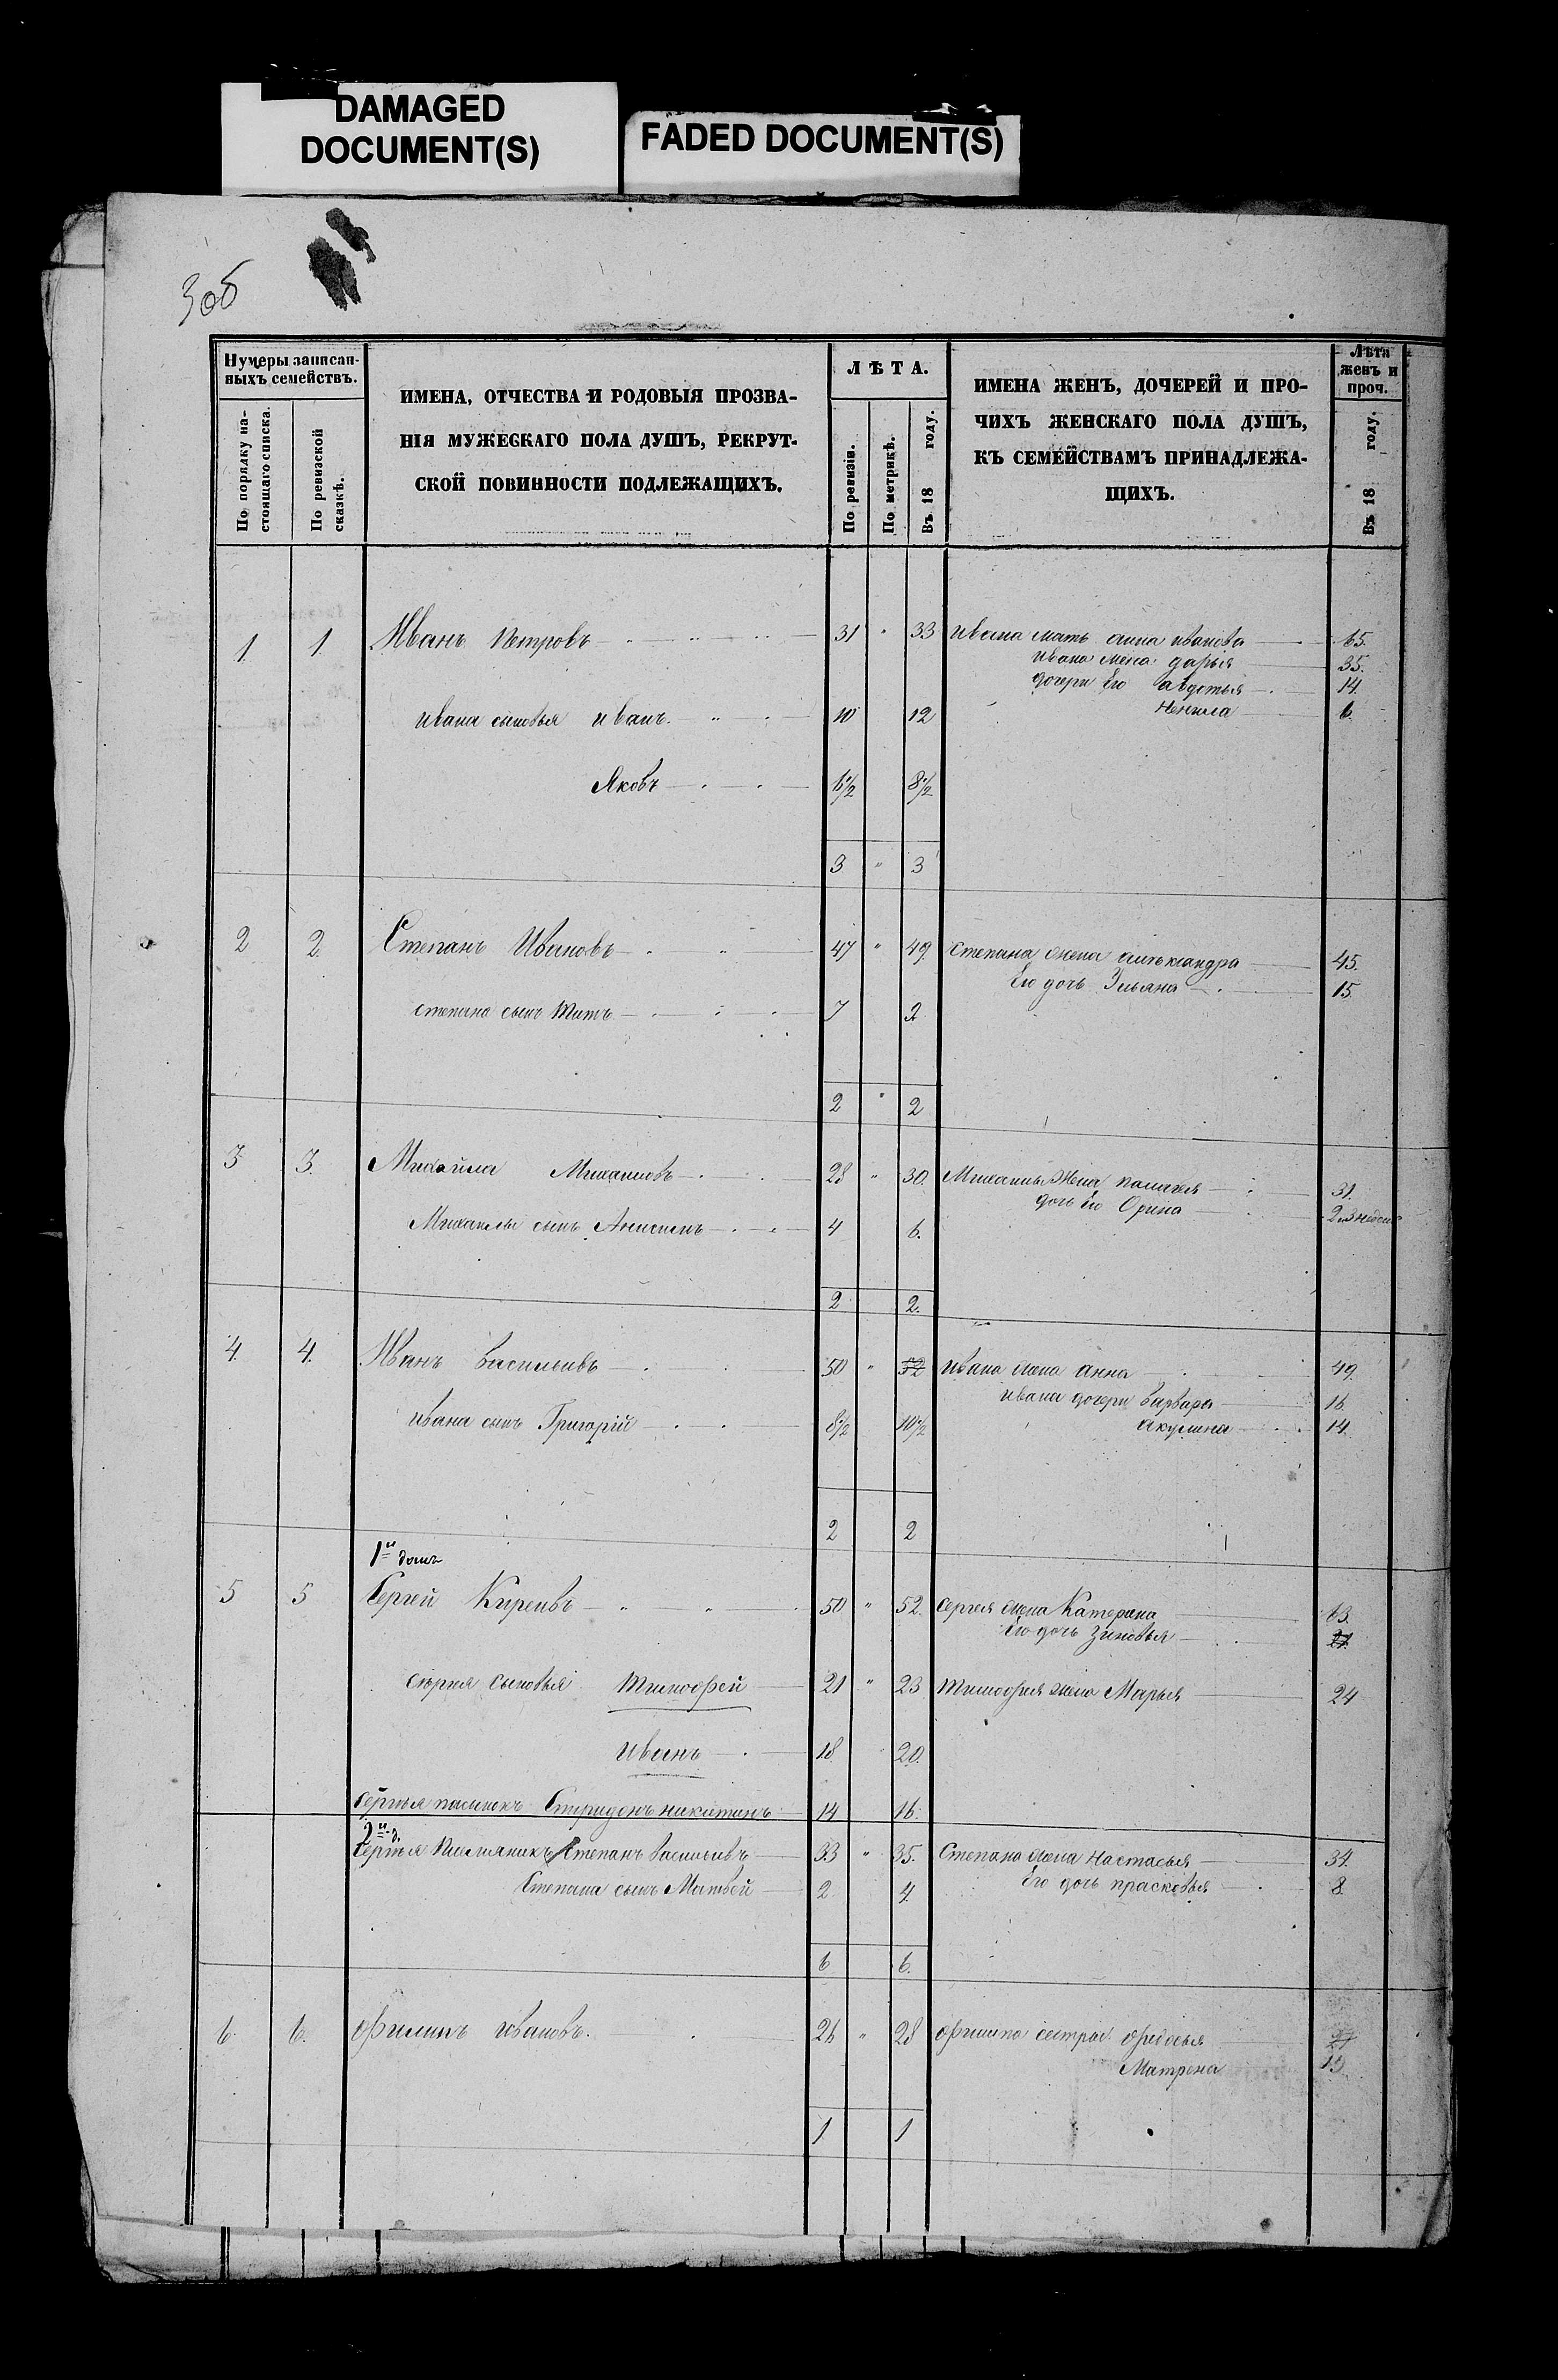 DAMAGED
DOCUMENT(S)
FADED DOCUMENT(S)
306
Нумеры записан-
ныхъ семействъ.
По порядку на-
стоящаго списка.
По ревизской
сказкѣ.
ИМЕНА, ОТЧЕСТВА И РОДОВЫЯ ПРОЗВА-
НІЯ МУЖЕСКАГО ПОЛА ДУШЪ, РЕКРУТ-
СКОЙ ПОВИННОСТИ ПОДЛЕЖАЩИХЪ.
ЛѢТА.
По ревизіи.
По метрикѣ.
Въ 18 году.
ИМЕНА ЖЕНЪ, ДОЧЕРЕЙ И ПРО-
ЧИХЪ ЖЕНСКАГО ПОЛА ДУШЪ,
КЪ СЕМЕЙСТВАМЪ ПРИНАДЛЕЖА-
ЩИХЪ.
Лѣта
женъ и
проч.
Въ 18 году.
1. 1. Иванъ Петровъ 31 " 33 Ивана мать анна иванова 65.
Ивана жена дарья 35.
дочери Его авдотья 14.
Ненила 6
Ивана сыновья иванъ 10 12
Яковъ 6 1/2 8 1/2
3 " 3
2 2. Степанъ Ивановъ 47 " 49. степана жена александра 45.
Его дочь Ульяна 15.
степана сынъ титъ 7 2
2 " 2
3 3. Михайла Михаиловъ 28 " 30. Михаилы Жена пелагея 31.
дочь Его Орина 2 недели
Михаилы сынъ Анисимъ 4 6.
2 2.
4. 4. Иванъ васильивъ 50 " 52 ивана жена анна 49.
ивана дочери варвара 16
акулина 14.
ивана сынъ Григорій 8 1/2 10 1/2
2 2
1й домъ
5 5 Сергей Киреивъ 50 " 52. сергея жена Катерина 63.
Его дочь зиновья 21.
сергея сыновья тимофей 21 " 23 тимофея жена Марья 24
иванъ 18 20.
Сергея пасынокъ Спиридонъ никитинъ 14 16.
2й д.
Сергея племяникъ Степанъ васильивъ 33 " 35. Степана жена настасья 34.
Его дочь прасковья 8.
Степана сынъ Матвей 2 4.
6 6.
6. 6. филипъ ивановъ. 26 " 28 филипа сестры федосья 21
Матрена 19
1 1